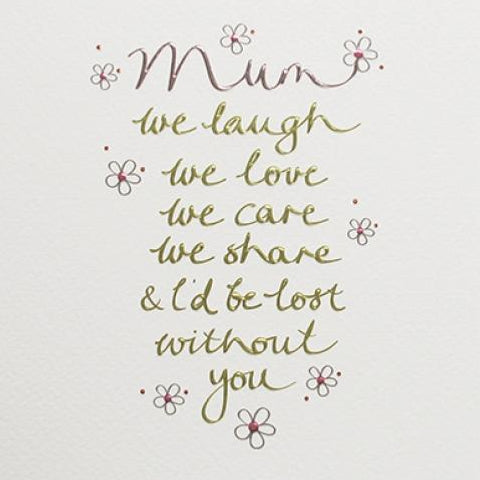 Mum
we laugh
we love
we care
we share
& I'd be lost
without
you